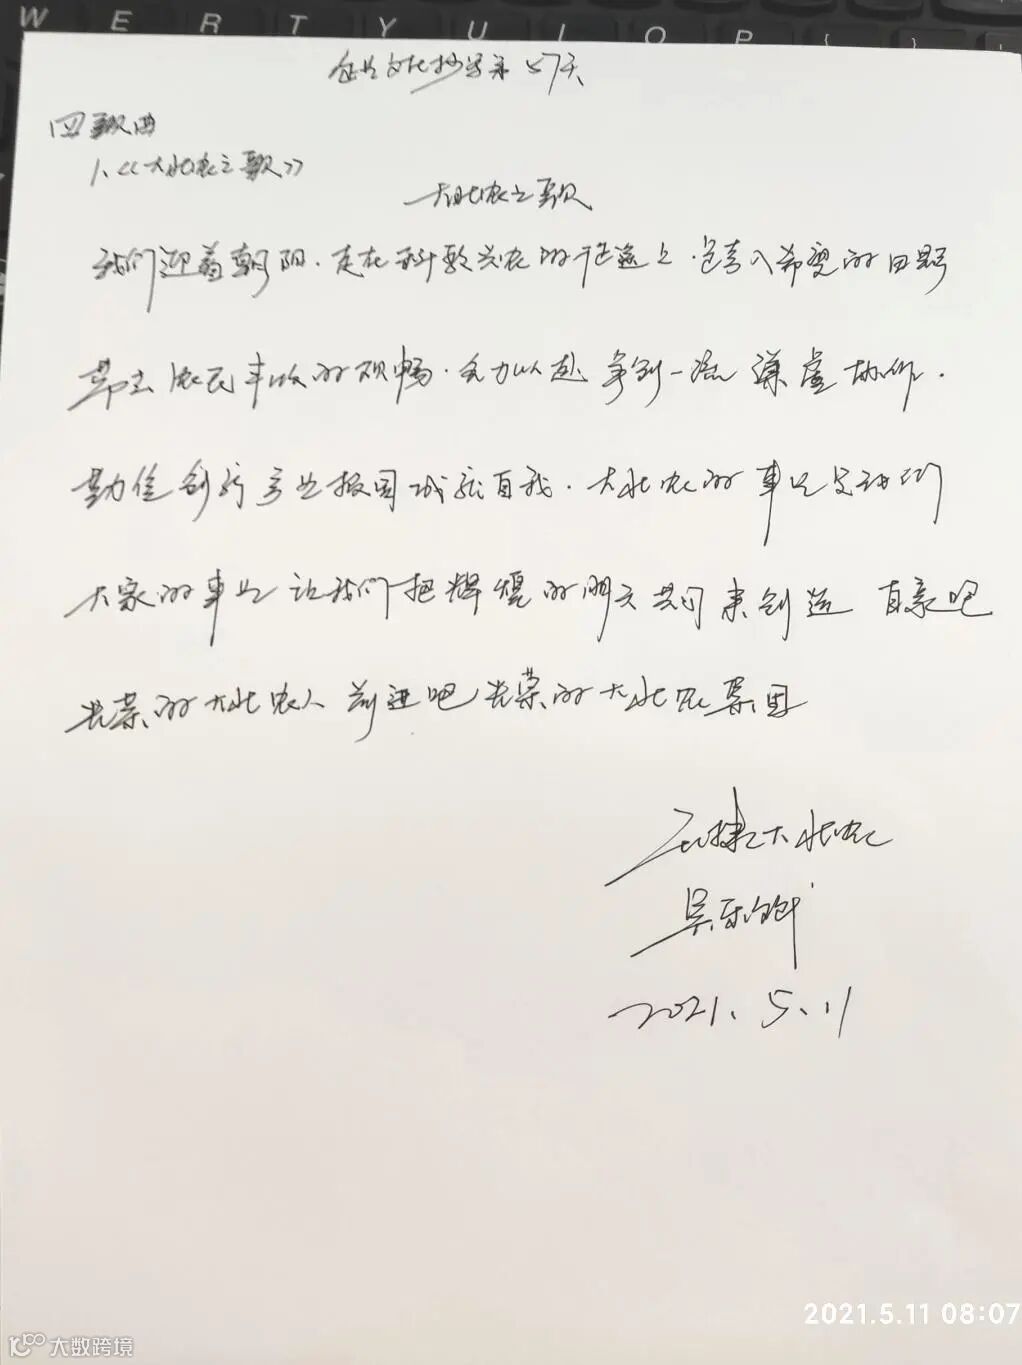 W E R T Y U I O P
企业文化抄写第57天
四 歌曲
1、《大北农之歌》
大北农之歌
我们迎着朝阳.走在科教兴农的征途上.踏入希望的田野
带去农民丰收的祝畅.全力以赴 争创一流 谦虚协作.
勤俭创新 产业报国 成就自我.大北农的事业是我们
大家的事业 让我们把辉煌的明天共同来创造 自豪吧
光荣的大北农人 前进吧 光荣的大北农集团
大北农
2021.5.11
2021.5.11 08:07
大数跨境